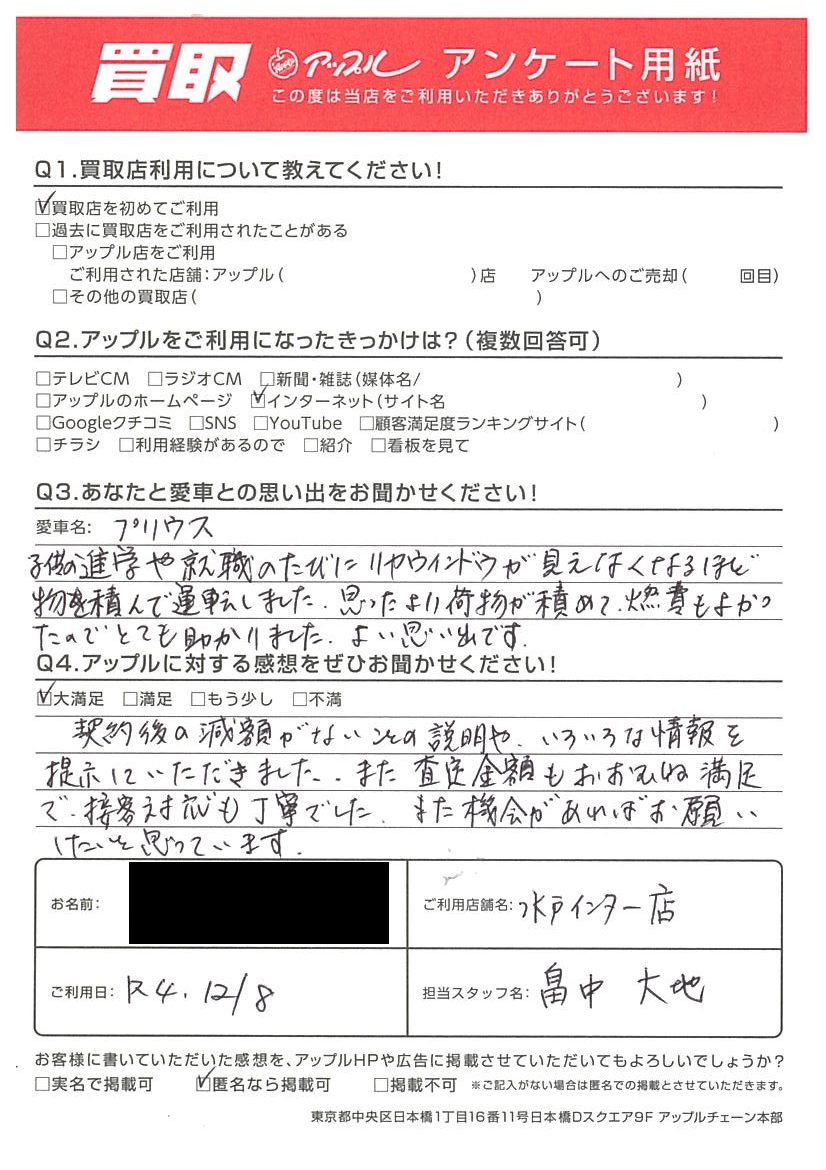 買取 アップル アンケート用紙
この度は当店をご利用いただきありがとうございます!
Q1.買取店利用について教えてください!
☑買取店を初めてご利用
□過去に買取店をご利用されたことがある
□アップル店をご利用
ご利用された店舗:アップル( )店 アップルへのご売却( 回目)
□その他の買取店( )
Q2.アップルをご利用になったきっかけは?(複数回答可)
□テレビCM □ラジオCM □新聞・雑誌(媒体名/ )
□アップルのホームページ ☑インターネット(サイト名 )
□Googleクチコミ □SNS □YouTube □顧客満足度ランキングサイト( )
□チラシ □利用経験があるので □紹介 □看板を見て
Q3.あなたと愛車との思い出をお聞かせください!
愛車名: プリウス
子供の進学や就職のたびにリヤウインドウが見えなくなるほど
物を積んで運転しました。思ったより荷物が積めて、燃費もよかっ
たのでとても助かりました。よい思い出です。
Q4.アップルに対する感想をぜひお聞かせください!
☑大満足 □満足 □もう少し □不満
契約後の減額がないことの説明や、いろいろな情報を
提示していただきました。また査定金額もおおむね満足
で、接客対応も丁寧でした。また機会があればお願い
したいと思っています。
お名前:
ご利用店舗名: 水戸インター店
ご利用日: R4. 12/8
担当スタッフ名: 畠中 大地
お客様に書いていただいた感想を、アップルHPや広告に掲載させていただいてもよろしいでしょうか?
□実名で掲載可 ☑匿名なら掲載可 □掲載不可 ※ご記入がない場合は匿名での掲載とさせていただきます。
東京都中央区日本橋1丁目16番11号日本橋Dスクエア9F アップルチェーン本部